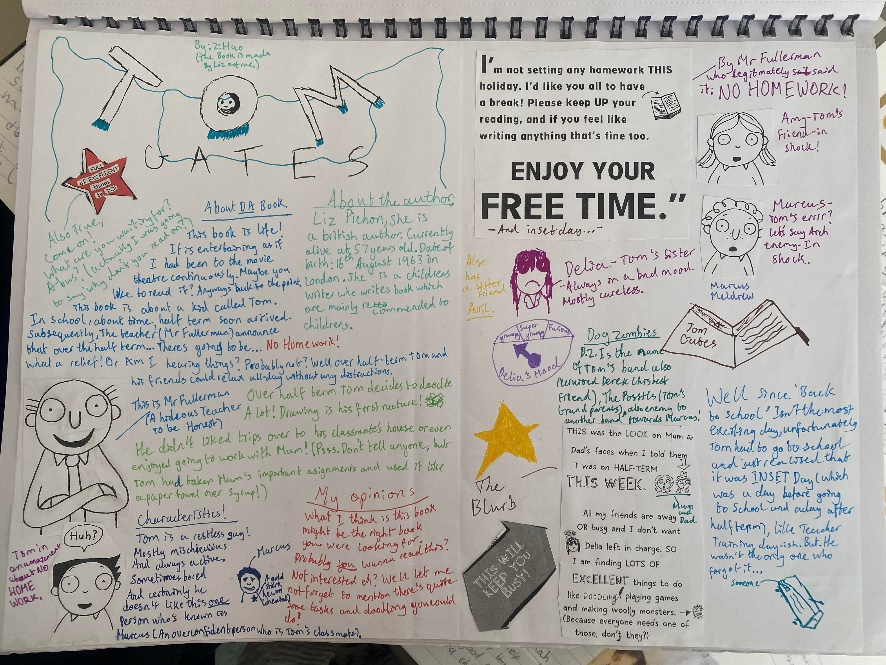 TOM
GATES
By: Z. Huo
(The Book is made
By Liz not me.)
Also True,
Come on!
What are you waiting for?
A bus? (Actually I was going
to say why don't you read on?)
About DA Book
This book is life!
It is entertaining as if
I had been to the movie
theatre continuously. Maybe you
like to read it? Anyways back to the point,
This book is about a kid called Tom.
In school, about time, half term soon arrived.
Subsequently, The teacher (Mr Fullerman) announce
that over the half term... There's going to be... No Homework!
What a relief! Or Am I hearing things? Probably not? Well over half-term Tom and
his friends could relax all-day without any distractions.
About the author
Liz Pichon, she is
a british author. Currently
alive at 57 years old. Date of
birth: 16th August 1963 in
London. She is a childrens
writer who writes book which
are mainly recommended to
childrens.
This is Mr Fullerman
(A hideous Teacher
To be Honest)
Over half term Tom decides to doodle
A lot! Drawing is his first nature!
He didn't liked trips over to his classmate's house or even
enjoyed going to work with Mum! (Psss. Don't tell anyone, but
Tom had taken Mum's important assignments and used it like
a paper towel over syrup!)
Characteristics!
Tom is a restless guy!
Mostly mischievous
And always active,
Sometimes bored
And certainly he
doesn't like this one
Person who's known as
Marcus (An overconfident person who is Tom's classmate).
Huh?
Tom in
amazement
about NO
HOME
WORK.
Marcus
My opinions
What I think is this book
might be the right book
you were looking for,
Probably you wanna read this?
Not interested? Well let me
not forget to mention there's quote
some tasks and doodling you could
do!
I'm not setting any homework THIS
holiday. I'd like you all to have
a break! Please keep UP your
reading, and if you feel like
writing anything that's fine too.
ENJOY YOUR
FREE TIME."
- And inset day...-
By Mr Fullerman
who legitimately said
it: NO HOMEWORK!
Amy-Tom's
Friend-in
shock!
Marcus-
Tom's errr?
Lets say Arch
enemy-In
shock.
Marcus
Meldrew
Also
has a
friend
Avril.
Delia-Tom's Sister
-Always in a bad mood.
Mostly careless.
Delia's Mood
Dog Zombies
D.Z. Is the name
of Tom's band also
Tom
Gates
The
Blurb
THIS WILL
KEEP YOU
BUSY!
THIS was the LOOK on Mum &
Dad's faces when I told them
I was on HALF-TERM
THIS WEEK.
Mum
and
Dad
All my friends are away
OR busy and I don't want
Delia left in charge. SO
I am finding LOTS OF
EXCELLENT things to do
like DOODLING, playing games
and making woolly monsters.
(Because everyone needs one of
those, don't they?)
Well since 'Back
to school' Isn't the most
exciting day, unfortunately
Tom had to go to school
and just realised that
it was INSET Day (which
was a day before going
to School and a day after
half term), Like Teacher
Training day-ish. But He
wasn't the only one who
forgot it...
someone